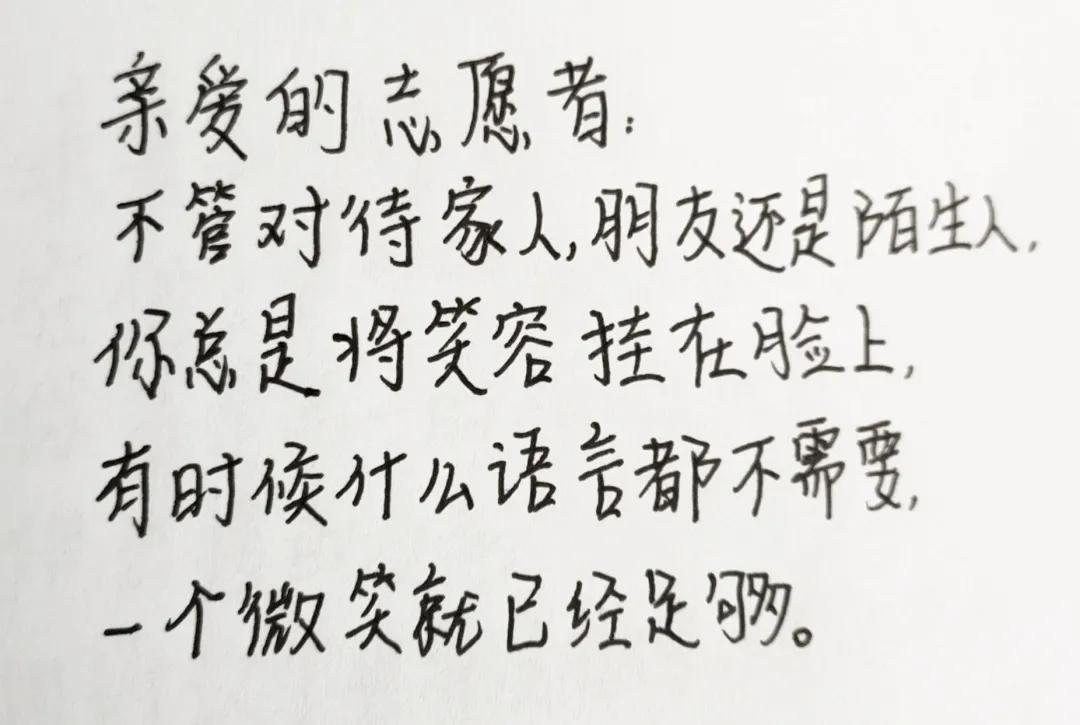 亲爱的志愿者:
不管对待家人,朋友还是陌生人,
你总是将笑容挂在脸上,
有时候什么语言都不需要,
一个微笑就已经足够。